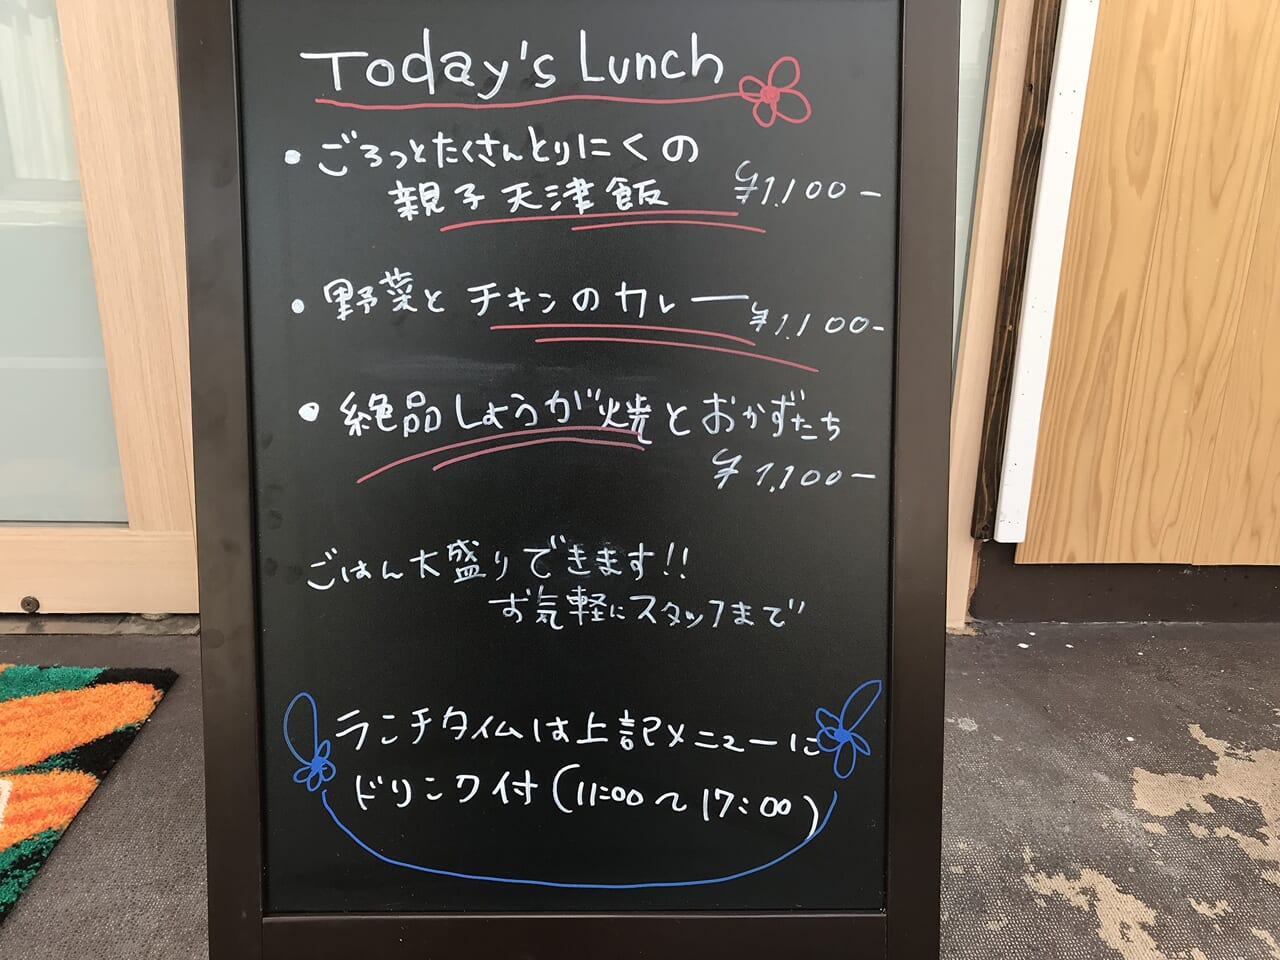 Today's Lunch
・ごろっとたくさんとりにくの
親子天津飯 ¥1,100ー
・野菜とチキンのカレー ¥1,100-
・絶品しょうが焼とおかずたち
¥1,100ー
ごはん大盛りできます!!
お気軽にスタッフまで
ランチタイムは上記メニューに
ドリンク付(11:00〜17:00)